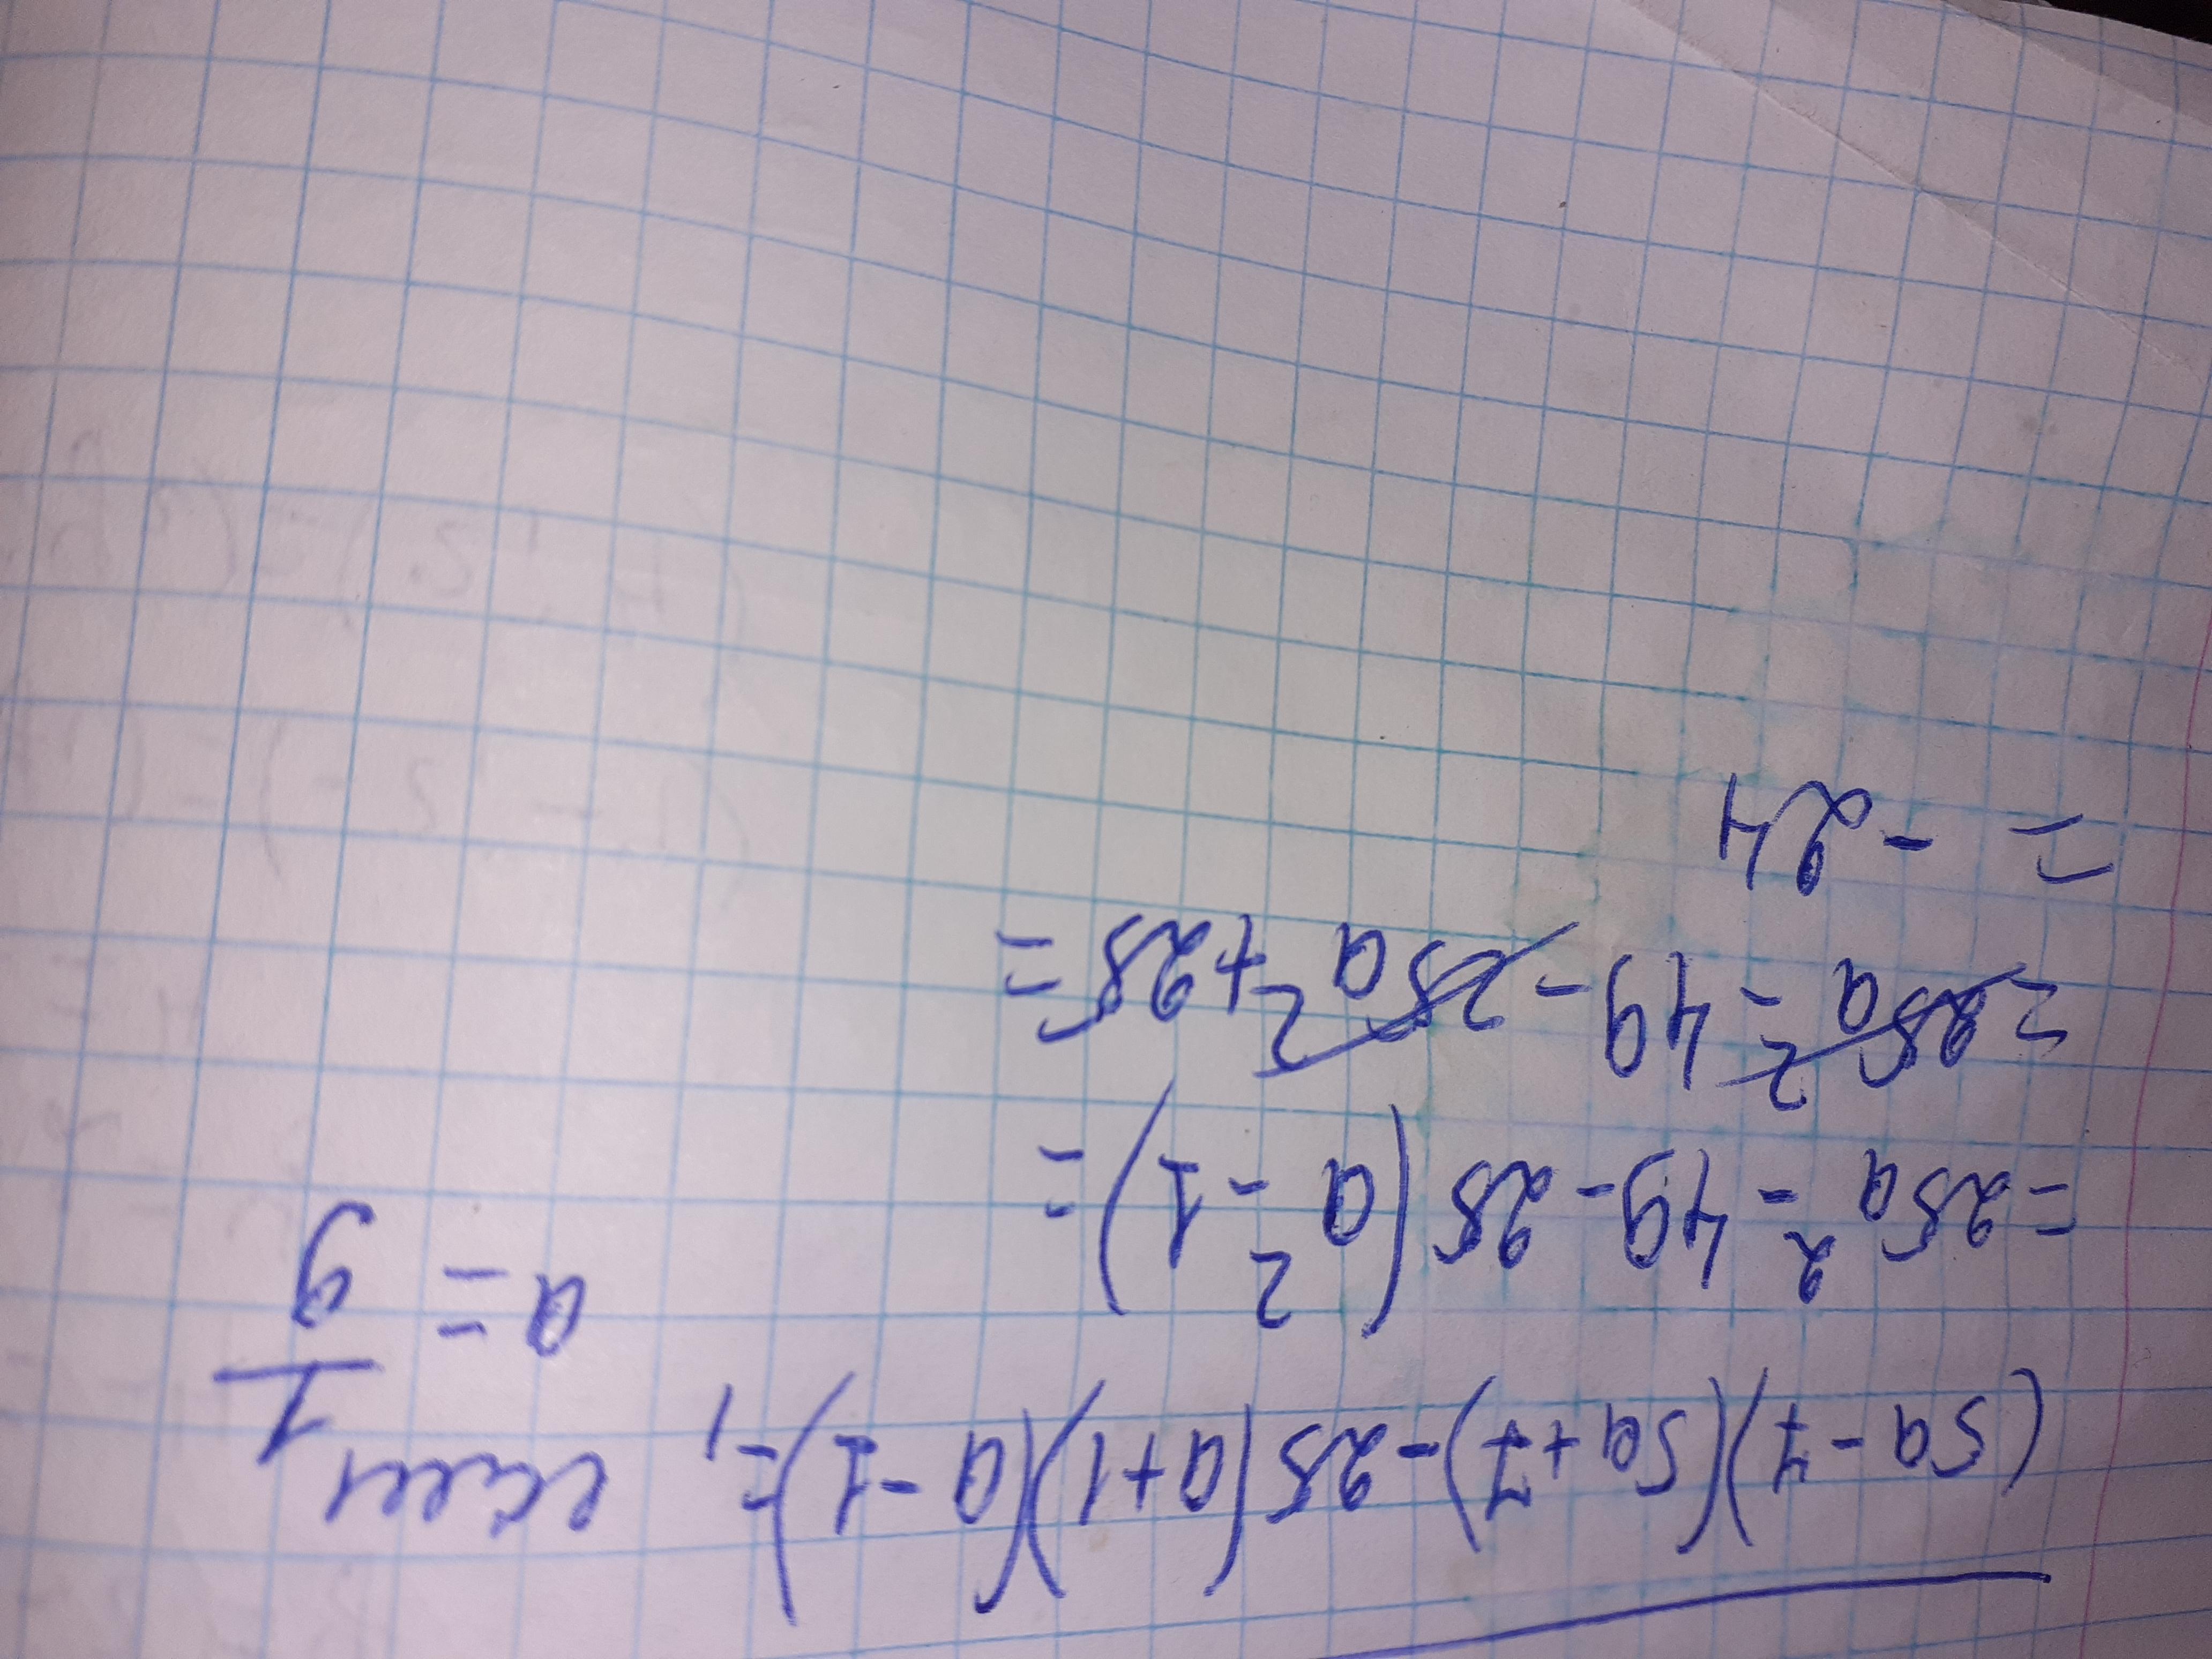 (5a-7)(5a+7)-25(a+1)(a-1)=, если
a=1/9
=25a²-49-25(a²-1)=
=25a²-49-25a²+25=
= -24